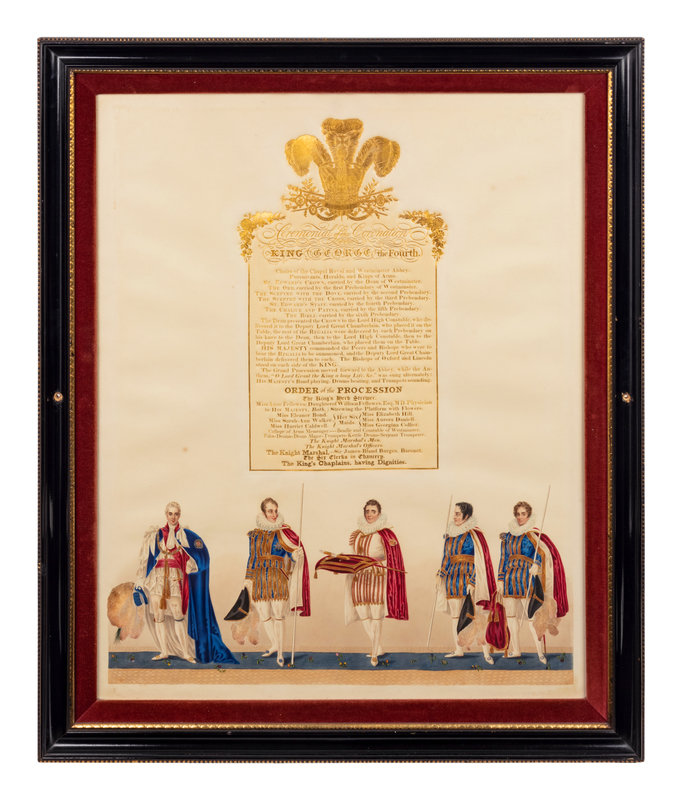 Ceremonial of the Coronation
KING GEORGE the Fourth.
Choirs of the Chapel Royal and Westminster Abbey.
Pursuivants, Heralds, and Kings of Arms.
St. EDWARD'S CROWN, carried by the Dean of Westminster.
The ORB, carried by the first Prebendary of Westminster.
The SCEPTRE WITH THE DOVE, carried by the second Prebendary.
The SCEPTRE WITH THE CROSS, carried by the third Prebendary.
St. EDWARD'S STAFF, carried by the fourth Prebendary.
The CHALICE AND PATINA, carried by the fifth Prebendary.
The BIBLE, carried by the sixth Prebendary.
The Dean presented the CROWN to the Lord High Constable, who de-
livered it to the Deputy Lord Great Chamberlain, who placed it on the
Table; the rest of the REGALIA were delivered by each Prebendary on
his knee to the Dean, then to the Lord High Constable, then to the
Deputy Lord Great Chamberlain, who placed them on the Table.
HIS MAJESTY commanded the Peers and Bishops who were to
bear the REGALIA to be summoned, and the Deputy Lord Great Cham-
berlain delivered them to each. The Bishops of Oxford and Lincoln
stood on each side of the KING.
The Grand Procession moved forward to the Abbey, while the An-
them, "O Lord Grant the King a long Life, &c." was sung alternately;
HIS MAJESTY'S Band playing, Drums beating, and Trumpets sounding.
ORDER of the PROCESSION
The King's Herb Strewer;
Miss Anne Fellowes, Daughter of William Fellowes, Esq. M.D. Physician
to HIS MAJESTY, Bath, Strewing the Platform with Flowers.
Miss Eleanor Bond. Her Six Miss Elizabeth Hill.
Miss Sarah-Ann Walker. Maids Miss Aurora Daniell.
Miss Harriet Caldwell. Miss Georgina Collier.
College of Arms Messenger — Beadle and Constable of Westminster.
Fifes-Drums-Drum Major-Trumpets-Kettle Drums-Serjeant Trumpeter.
The Knight Marshal's Men.
The Knight Marshal's Officers.
The Knight Marshal, Sir James Bland Burges, Baronet.
The Six Clerks in Chancery.
The King's Chaplains, having Dignities.